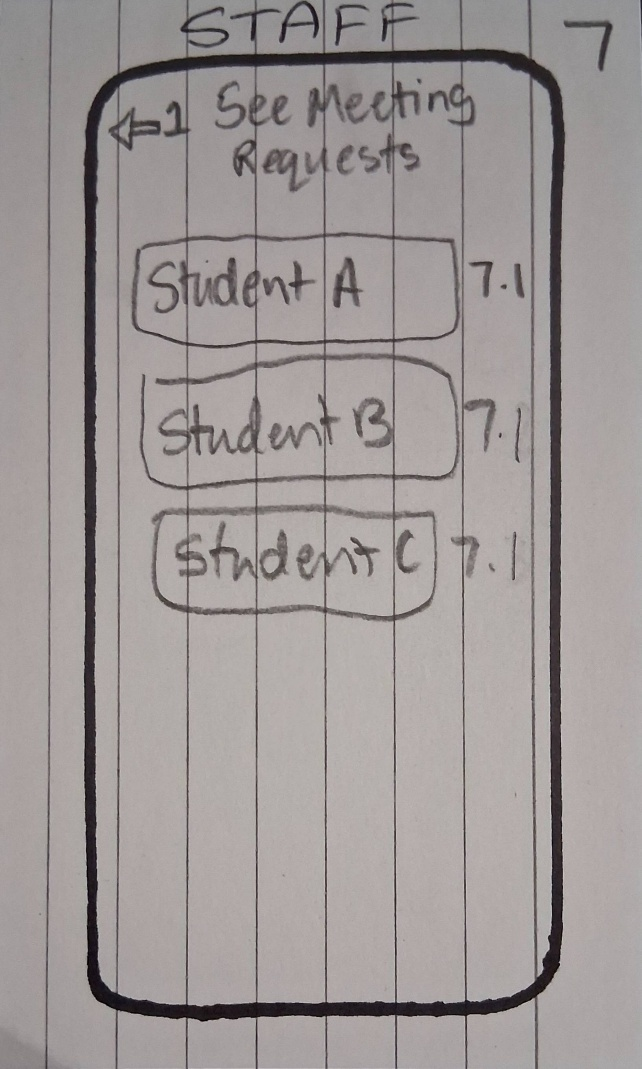 STAFF
7
←1 See Meeting
Requests
Student A 7.1
Student B 7.1
Student C 7.1